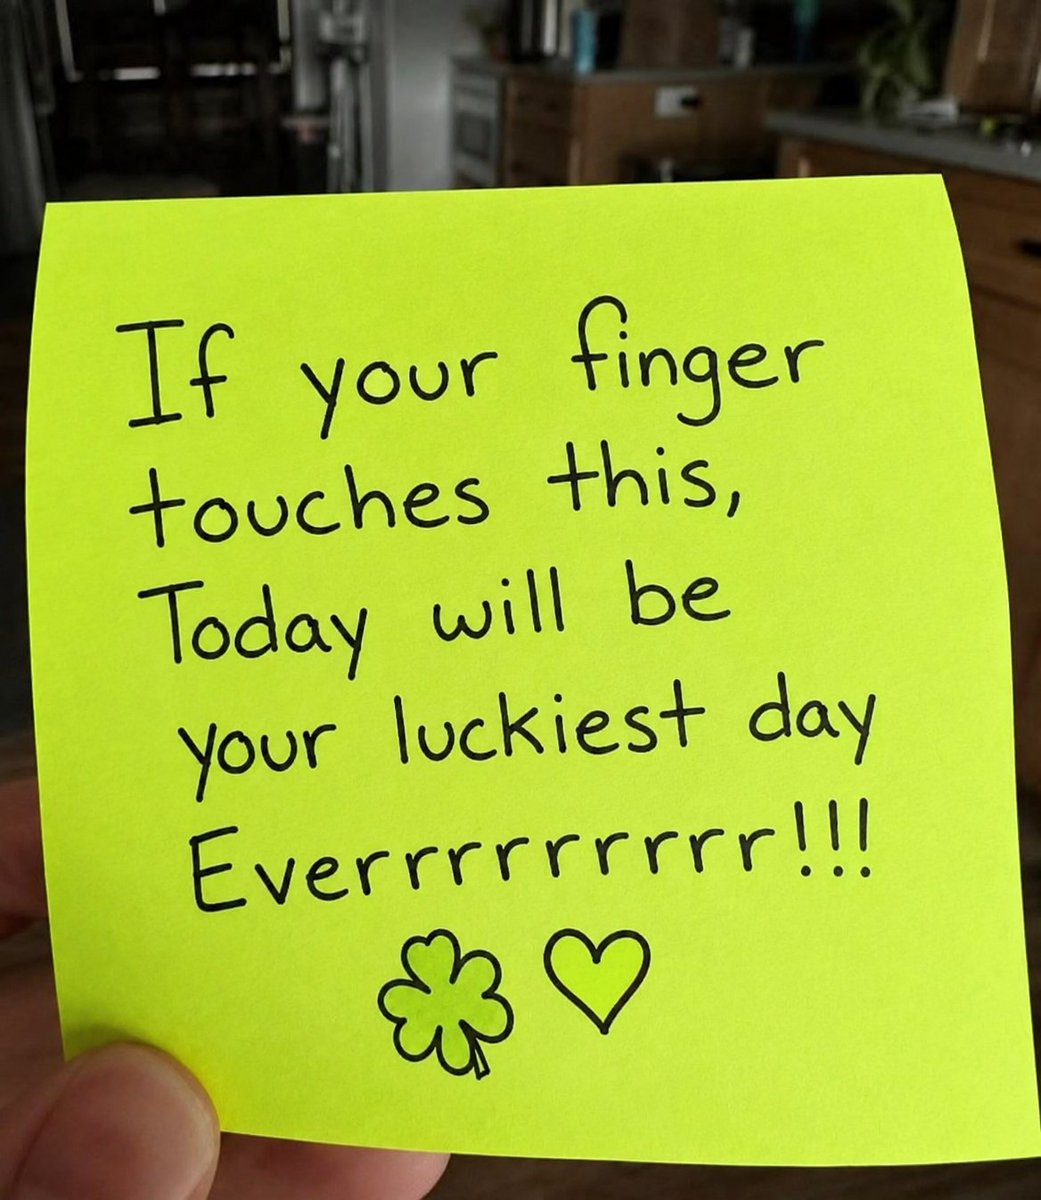 If your finger
touches this,
Today will be
your luckiest day
Everrrrrrrrr!!!